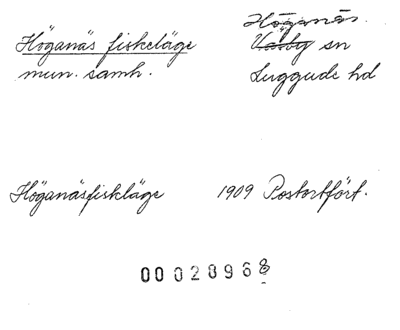 Höganäs fiskeläge
mun. samh.
Höganäs.
Väsby sn
Luggude hd
Höganäsfiskläge 1909 Postortfört.
00028968